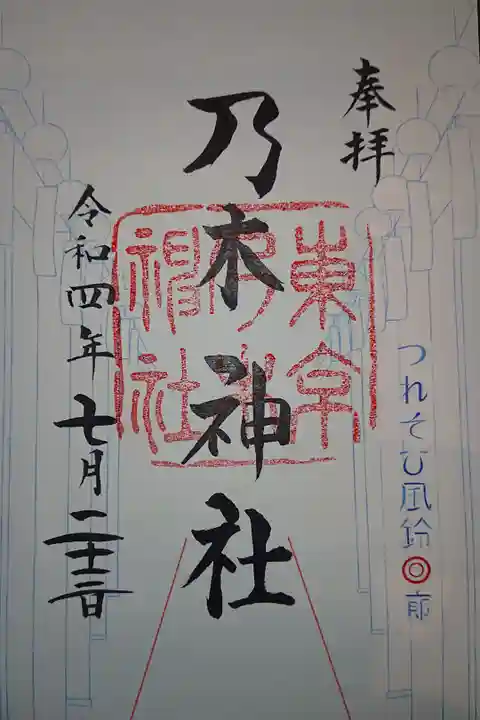 奉拝
つれそひ風鈴回廊
乃木神社
東京
乃木
神社
令和四年七月二十三日